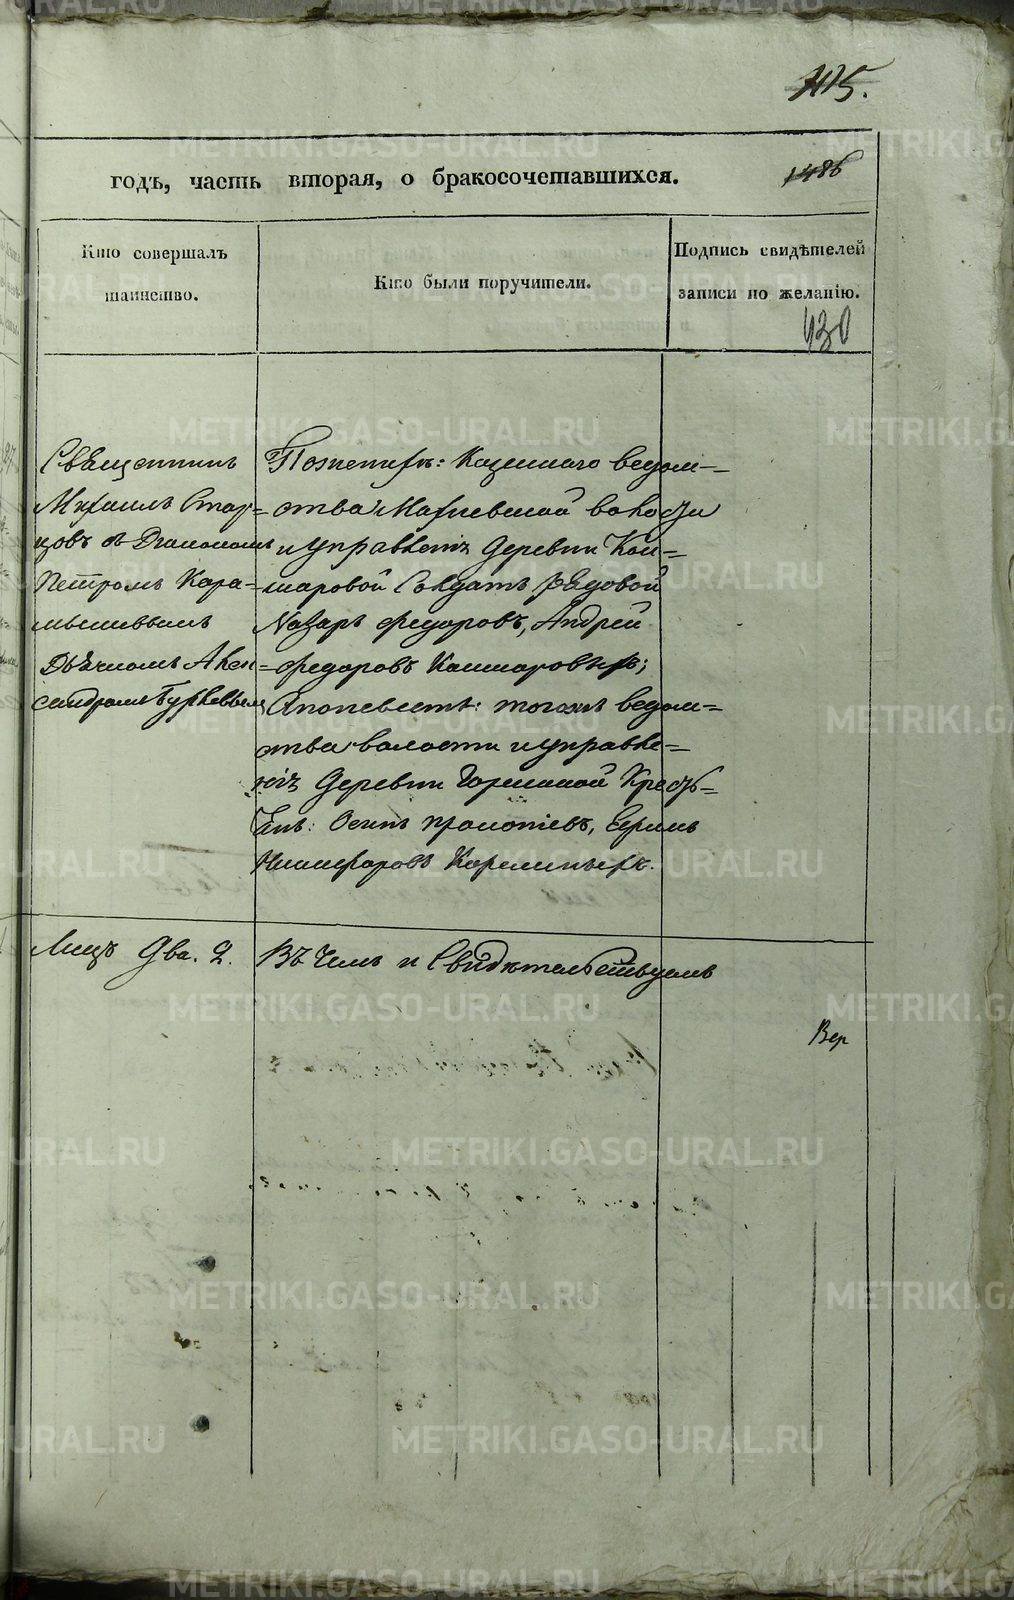 115.
годъ, часть вторая, о бракосочетавшихся.
1486
Кто совершалъ
таинство.
Кто были поручители.
Подпись свидѣтелей
записи по желанію.
430
Священникъ
Михаилъ Стар=
цовъ съ Діакономъ
Петромъ Кара=
мышевымъ
Дьячкомъ Алек=
сандромъ
По женихѣ: Казеннаго ведом=
ства Махневской волости
и управленія Деревни Кош=
маровой Солдатъ рядовой
Назаръ Федоровъ, Андрей
Федоровъ Кошмаровыхъ;
По невестѣ: тогожъ ведом=
ства волости и управле=
нія Деревни Кресть=
яне: Осипъ Прокопіевъ,
Никифоровъ Карелиныхъ.
Лицъ Два. 2.
Въ чемъ и Свидѣтельствуемъ
Вер
METRIKI.GASO-URAL.RU